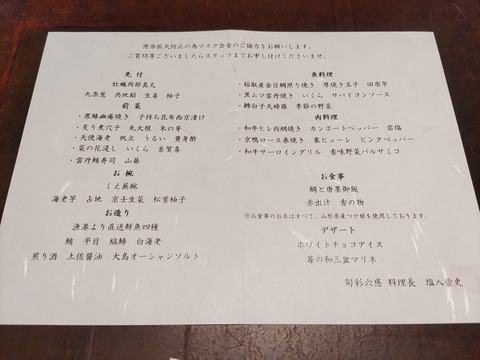 感染拡大防止の為マスク会食のご協力をお願いします。
ご質問等ございましたらスタッフまでお申し付けくださいませ。
先付
牡蠣同部真丈
九条葱 共地餡 生姜 柚子
前菜
・寒鰆幽庵焼き 子持ち昆布西京漬け
・炙り煮穴子 丸大根 木の芽
・天使海老 帆立 うるい 黄身酢
・菜の花浸し いくら 糸賀喜
・雲丹鮪寿司 山葵
お椀
くえ蕪椀
海老芋 占地 京壬生菜 松葉柚子
お造り
漁港より直送鮮魚四種
鮪 平目 縞鯵 白海老
煎り酒 土佐醤油 大島オーシャンソルト
魚料理
・稲取産金目鯛照り焼き 厚焼き玉子 田楽芋
・黒ムツ雲丹焼き いくら サバイヨンソース
・鱈白子天婦羅 季節の野菜
肉料理
・和牛ヒレ肉網焼き カンポートペッパー 岩塩
・京鴨ロース蒸焼き 栗ピューレ ピンクペッパー
・和牛サーロイングリル 香味野菜バルサミコ
お食事
鯛と唐墨御飯
赤出汁 香の物
※お食事のお米はすべて、山形県産つや姫を使用しております。
デザート
ホワイトチョコアイス
苺の和三盆マリネ
旬彩六感 料理長 塩入崇史